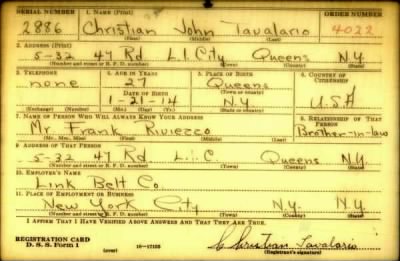 SERIAL NUMBER 1. NAME (Print) ORDER NUMBER
2886 Christian John Tavalario 4022
(First) (Middle) (Last)
2. ADDRESS (Print)
5-32 47 Rd L.I. City Queens N.Y.
(Number and street or R. F. D. number) (Town) (County) (State)
3. TELEPHONE 4. AGE IN YEARS 5. PLACE OF BIRTH 6. COUNTRY OF CITIZENSHIP
none 27 Queens
DATE OF BIRTH (Town or county)
1-21-14 N.Y. U.S.A
(Exchange) (Number) (Mo.) (Day) (Yr.) (State or country)
7. NAME OF PERSON WHO WILL ALWAYS KNOW YOUR ADDRESS 8. RELATIONSHIP OF THAT PERSON
Mr. Frank Riviezzo Brother-in-law
(Mr., Mrs., Miss) (First) (Middle) (Last)
9. ADDRESS OF THAT PERSON
5-32 47 Rd. L.I.C. Queens N.Y.
(Number and street or R. F. D. number) (Town) (County) (State)
10. EMPLOYER'S NAME
Link Belt Co.
11. PLACE OF EMPLOYMENT OR BUSINESS
New York City N.Y.
(Number and street or R. F. D. number) (Town) (County) (State)
I AFFIRM THAT I HAVE VERIFIED ABOVE ANSWERS AND THAT THEY ARE TRUE.
REGISTRATION CARD
D. S. S. Form 1 (over) 16-17105 Christian Tavalario
(Registrant's signature)